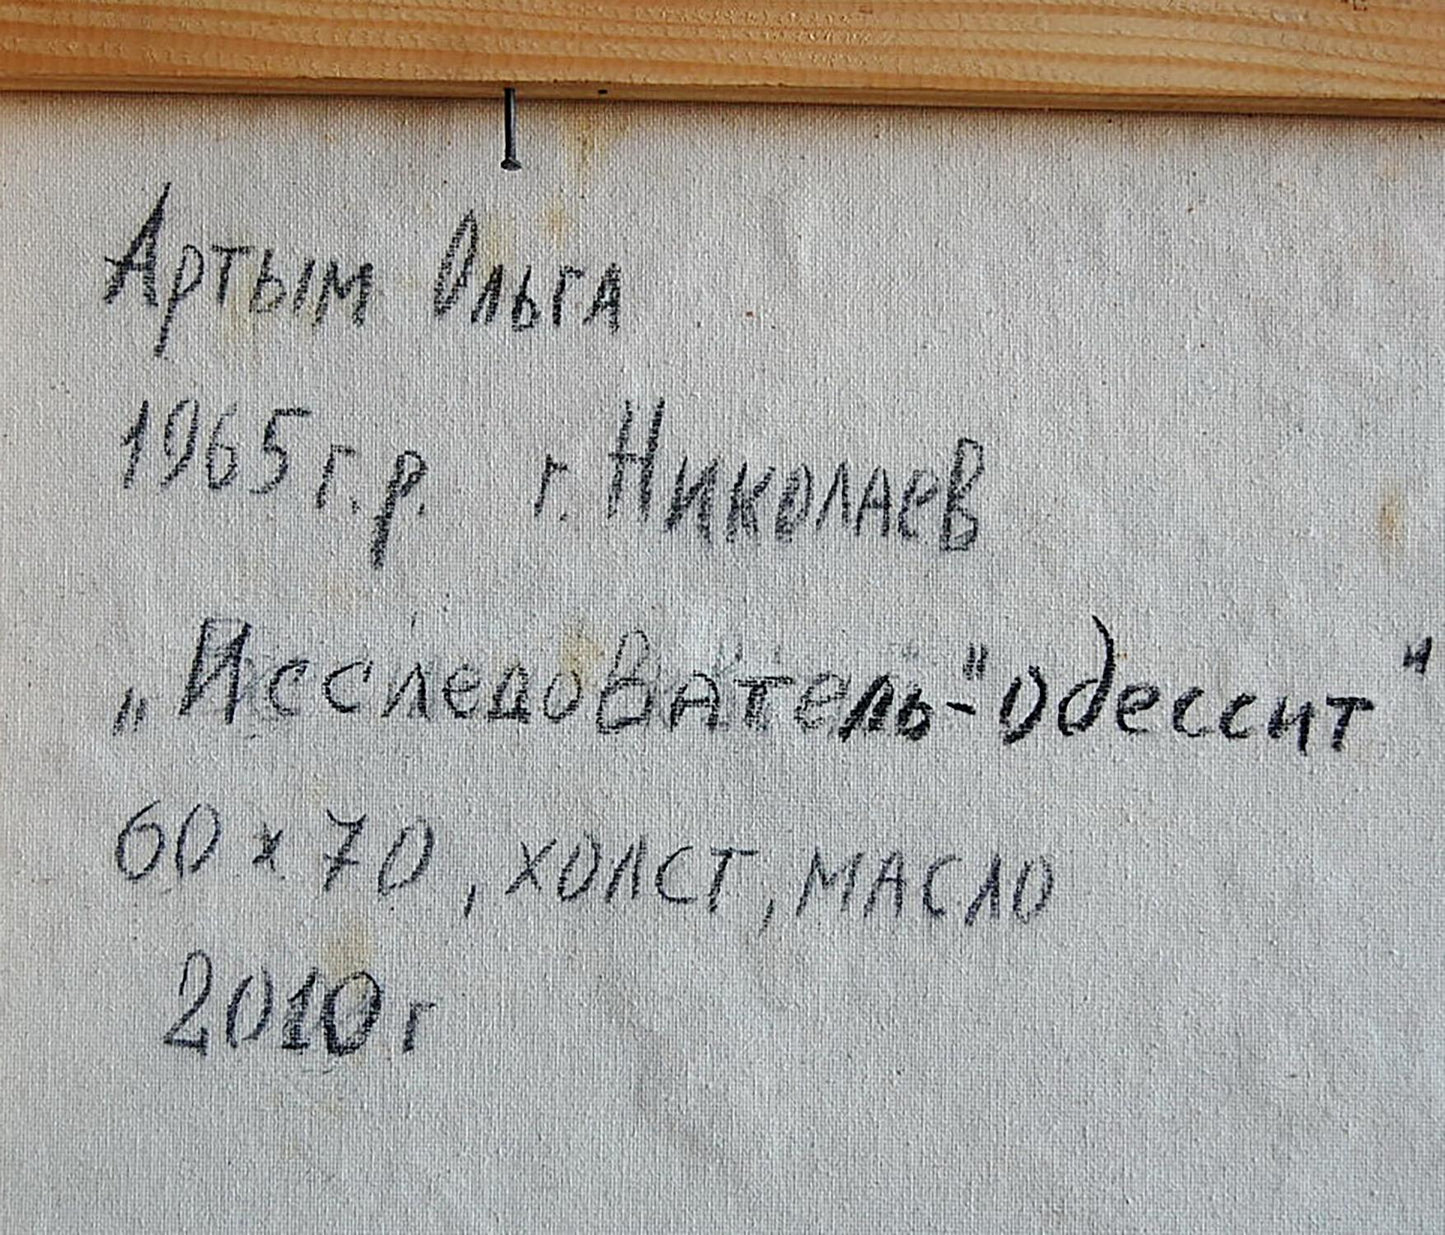 Артым Ольга
1965 г.р. г. Николаев
„Исследователь-"одессит"
60 x 70, холст, масло
2010 г